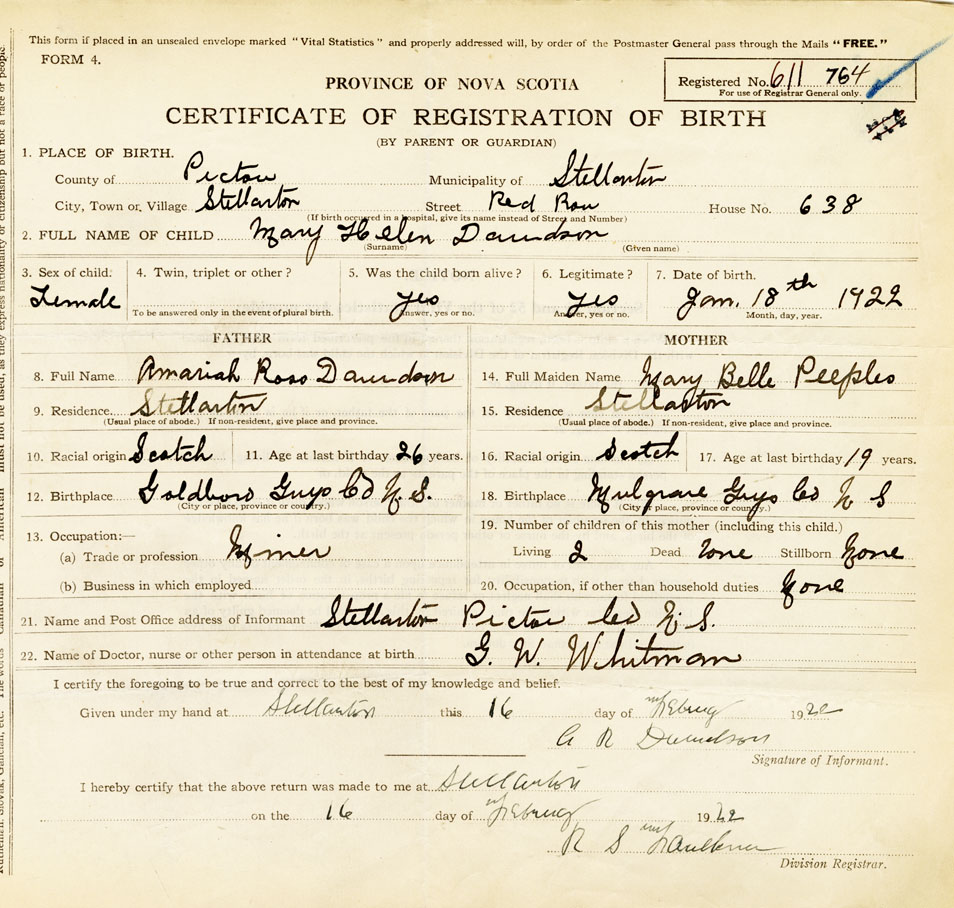 This form if placed in an unsealed envelope marked "Vital Statistics" and properly addressed will, by order of the Postmaster General pass through the Mails "FREE."
FORM 4.
PROVINCE OF NOVA SCOTIA
Registered No. 611 764
For use of Registrar General only.
CERTIFICATE OF REGISTRATION OF BIRTH
(BY PARENT OR GUARDIAN)
1. PLACE OF BIRTH.
County of Pictou Municipality of Stellarton
City, Town or Village Stellarton Street Red Row House No. 638
(If birth occurred in a hospital, give its name instead of Street and Number)
2. FULL NAME OF CHILD Mary Helen Davidson
(Surname) (Given name)
3. Sex of child. 4. Twin, triplet or other? 5. Was the child born alive? 6. Legitimate? 7. Date of birth.
Female yes yes Jan. 18th 1922
To be answered only in the event of plural birth. Answer, yes or no. Answer, yes or no. Month, day, year.
FATHER MOTHER
8. Full Name Amariah Ross Davidson 14. Full Maiden Name Mary Belle Peeples
9. Residence Stellarton 15. Residence Stellarton
(Usual place of abode.) If non-resident, give place and province. (Usual place of abode.) If non-resident, give place and province.
10. Racial origin Scotch 11. Age at last birthday 26 years. 16. Racial origin Scotch 17. Age at last birthday 19 years.
12. Birthplace Goldboro Guys Co N.S. 18. Birthplace Mulgrave Guys Co N S
(City or place, province or country.) (City or place, province or country.)
13. Occupation:— 19. Number of children of this mother (including this child.)
(a) Trade or profession Miner Living 2 Dead None Stillborn None
(b) Business in which employed 20. Occupation, if other than household duties None
21. Name and Post Office address of Informant Stellarton Pictou Co N.S.
22. Name of Doctor, nurse or other person in attendance at birth G. W. Whitman
I certify the foregoing to be true and correct to the best of my knowledge and belief.
Given under my hand at Stellarton this 16 day of 1922
A R Davidson
Signature of Informant.
I hereby certify that the above return was made to me at Stellarton
on the 16 day of 1922
R S Faulkner
Division Registrar.